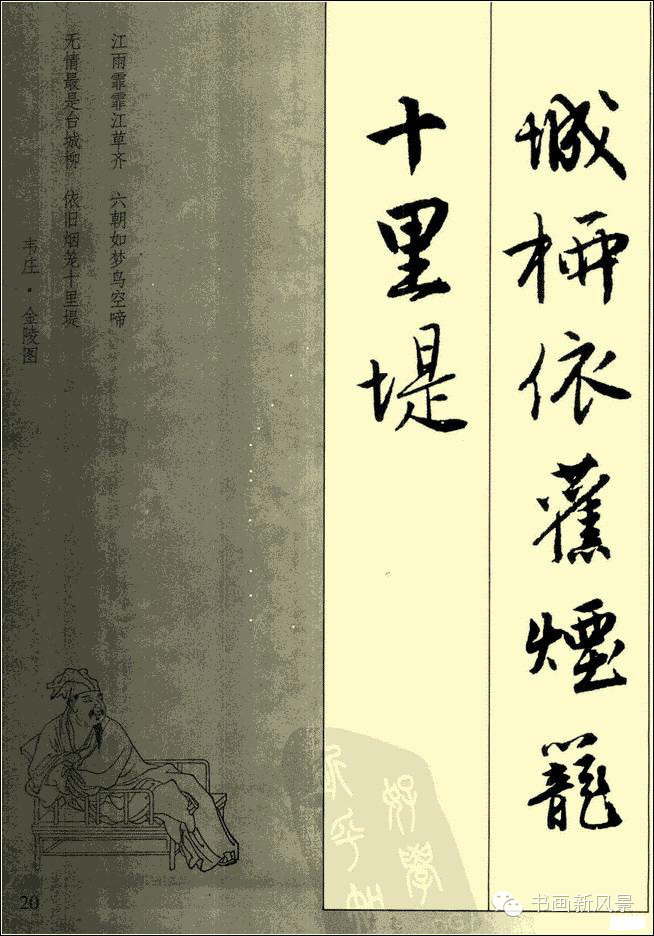 城柳依舊煙籠
十里堤
江雨霏霏江草齐　六朝如梦鸟空啼
无情最是台城柳　依旧烟笼十里堤
韦庄·金陵图
好學
20
书画新风景